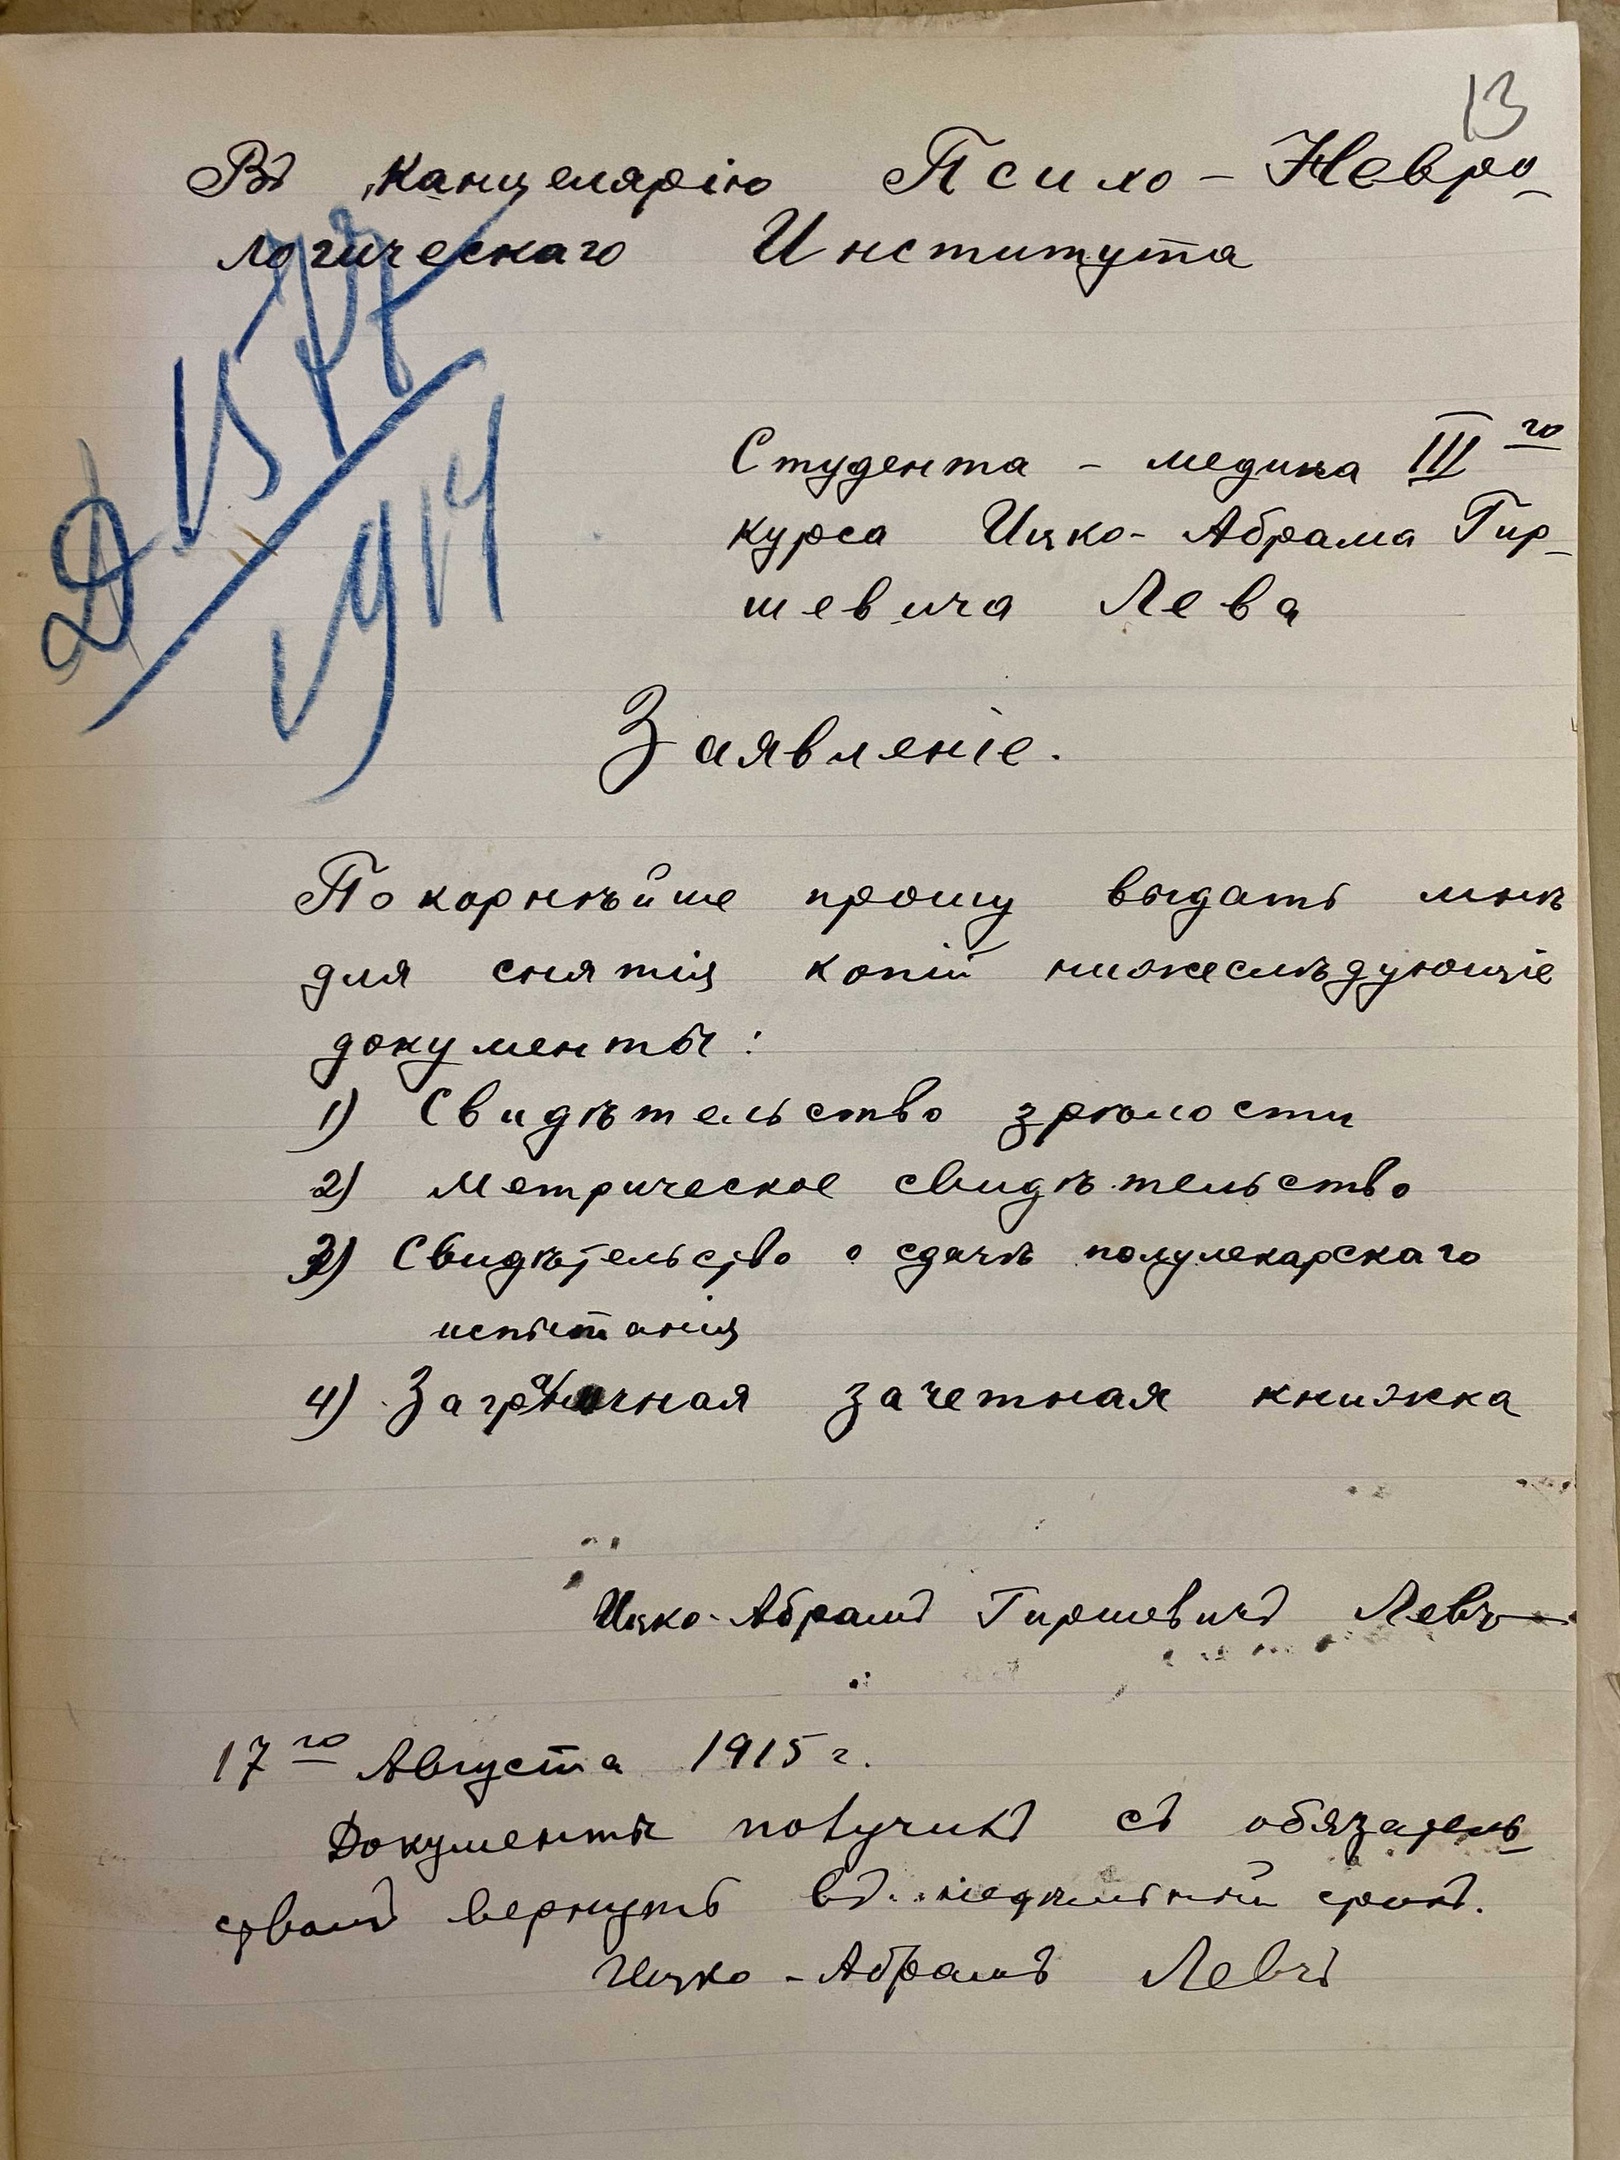 13
Въ Канцелярію Психо-Невро-
логическаго Института
Студента - медика III го
курса Ицко-Абрама Гир-
шевича Лева
Заявленіе.
Покорнѣйше прошу выдать мнѣ
для снятія копій нижеслѣдующіе
документы:
1) Свидѣтельство зрѣлости
2) Метрическое свидѣтельство
3) Свидѣтельство о сдачѣ полулекарскаго
испытанія
4) Заграничная зачетная книжка
Ицко-Абрамъ Гиршевичъ Левъ
17 го Августа 1915 г.
Документы получилъ съ обязатель-
ствомъ вернуть въ недѣльный срокъ.
Ицко-Абрамъ Левъ
1914